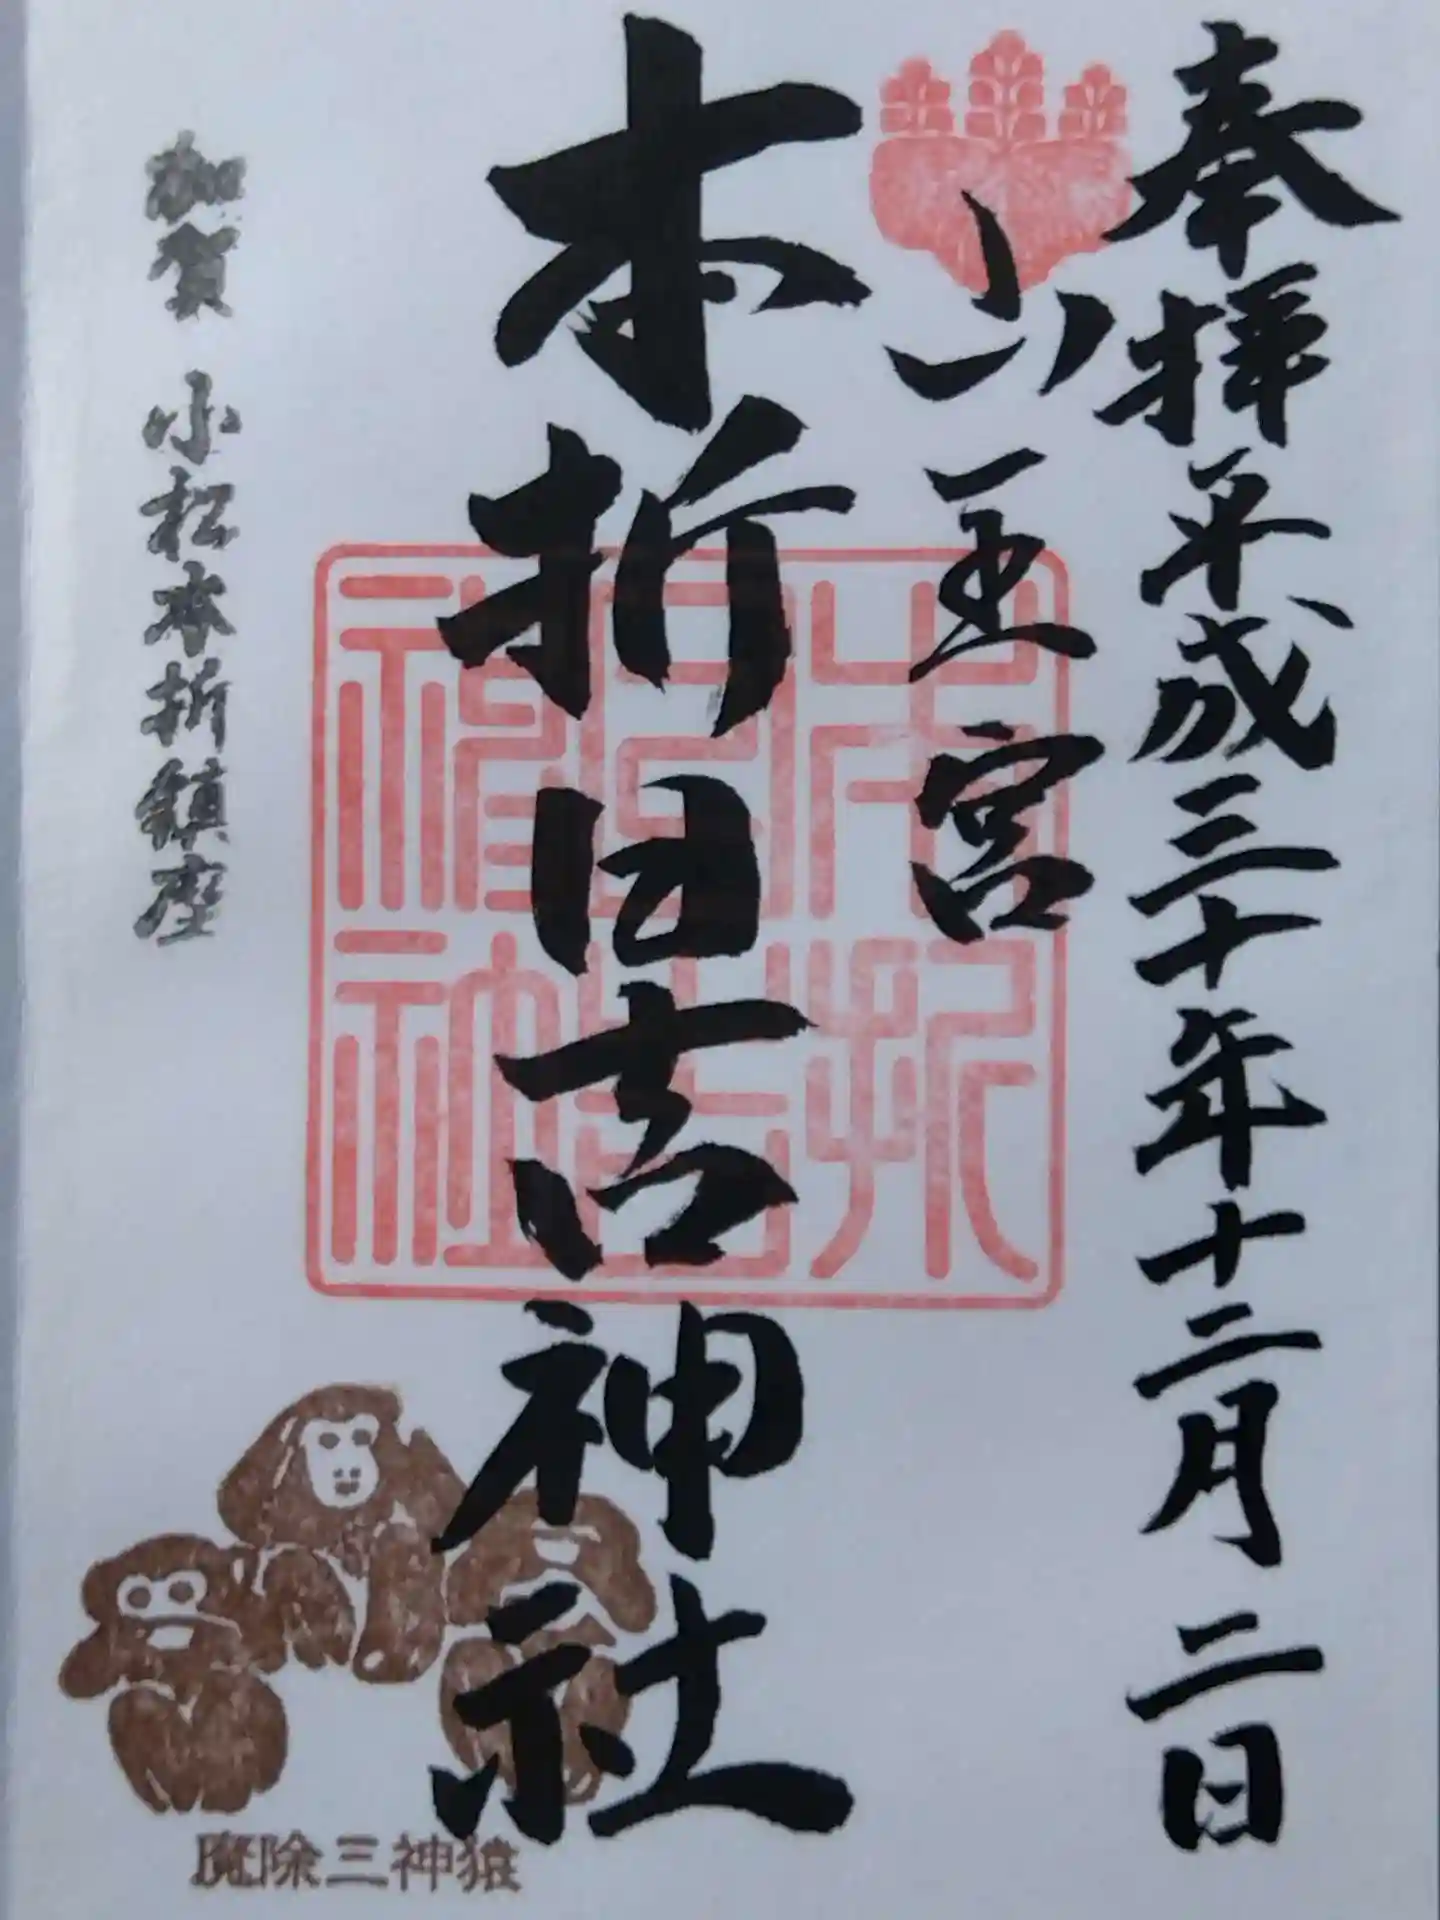 奉拝 平成三十年十二月二日
山王宮
本折日吉神社
本折日吉神社
加賀 小松本折鎮座
魔除三神猿